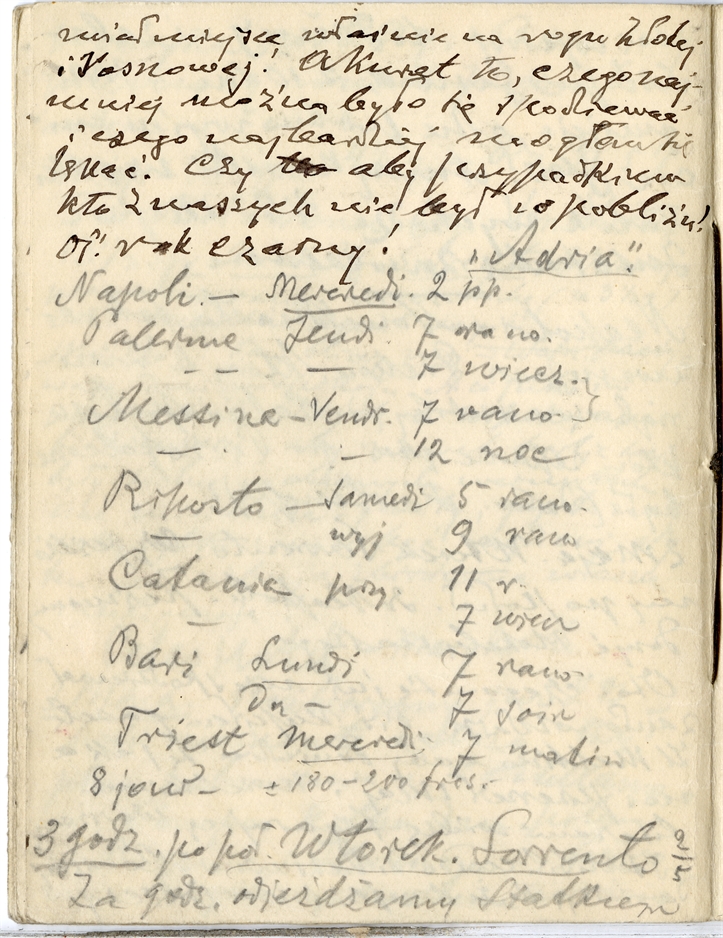 właśnie na rogu Złotej
i Sosnowej! Akurat to, czego naj-
mniej można było się spodziewać
i czego najbardziej mogłam się
lękać! Czy aby przypadkiem
kto z naszych nie był w pobliżu!
Oj! rak czarny!
"Adria".
Napoli. — Mercredi. 2 pp.
Palerme Jeudi. 7 rano.
— — — 7 wiecz.
Messina — Vendr. 7 rano
— — 12 noc
Riposto — Samedi 5 rano.
— wyj 9 rano
Catania przy. 11 r.
— 7 wiecz
Bari Lundi 7 rano
Du — 7 soir
Triest Mercredi 7 matin
8 jours — ± 180–200 frcs.
3 godz. po poł. Wtorek. Sorrento 2/5
Za godz. odjeżdżamy statkiem